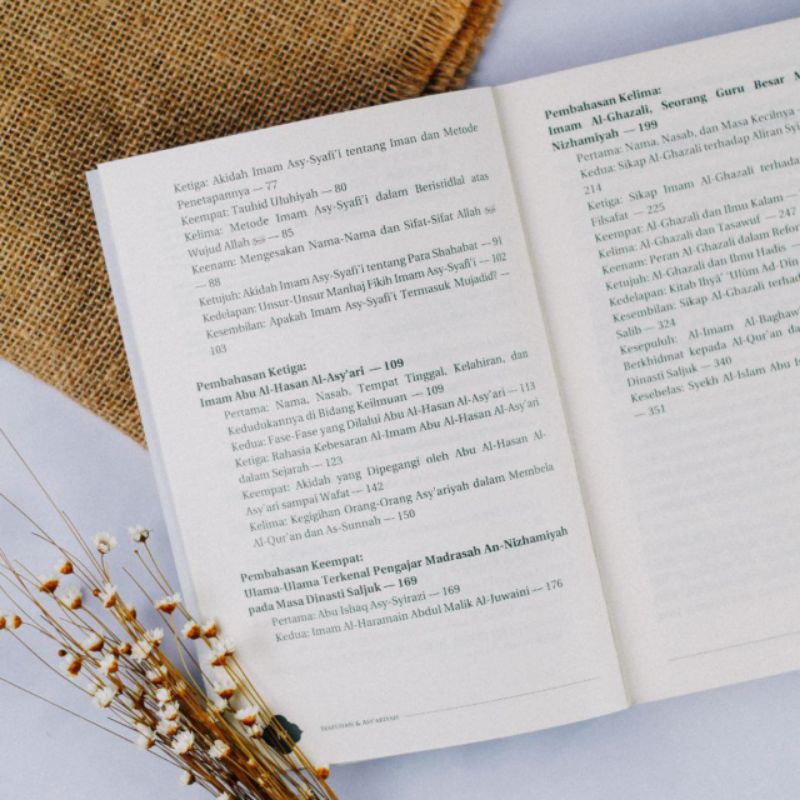 Ketiga: Akidah Imam Asy-Syafi'i tentang Iman dan Metode
Penetapannya — 77
Keempat: Tauhid Uluhiyah — 80
Kelima: Metode Imam Asy-Syafi'i dalam Beristidlal atas
Wujud Allah ﷻ — 85
Keenam: Mengesakan Nama-Nama dan Sifat-Sifat Allah ﷻ
— 88
Ketujuh: Akidah Imam Asy-Syafi'i tentang Para Shahabat — 91
Kedelapan: Unsur-Unsur Manhaj Fikih Imam Asy-Syafi'i — 102
Kesembilan: Apakah Imam Asy-Syafi'i Termasuk Mujadid? —
103
Pembahasan Ketiga:
Imam Abu Al-Hasan Al-Asy'ari — 109
Pertama: Nama, Nasab, Tempat Tinggal, Kelahiran, dan
Kedudukannya di Bidang Keilmuan — 109
Kedua: Fase-Fase yang Dilalui Abu Al-Hasan Al-Asy'ari — 113
Ketiga: Rahasia Kebesaran Al-Imam Abu Al-Hasan Al-Asy'ari
dalam Sejarah — 123
Keempat: Akidah yang Dipegangi oleh Abu Al-Hasan Al-
Asy'ari sampai Wafat — 142
Kelima: Kegigihan Orang-Orang Asy'ariyah dalam Membela
Al-Qur'an dan As-Sunnah — 150
Pembahasan Keempat:
Ulama-Ulama Terkenal Pengajar Madrasah An-Nizhamiyah
pada Masa Dinasti Saljuk — 169
Pertama: Abu Ishaq Asy-Syirazi — 169
Kedua: Imam Al-Haramain Abdul Malik Al-Juwaini — 176
Pembahasan Kelima:
Imam Al-Ghazali, Seorang Guru Besar
Nizhamiyah — 199
Pertama: Nama, Nasab, dan Masa Kecilnya
Kedua: Sikap Al-Ghazali terhadap Aliran
214
Ketiga: Sikap Imam Al-Ghazali
Filsafat — 225
Keempat: Al-Ghazali dan Ilmu Kalam —
Kelima: Al-Ghazali dan Tasawuf — 247
Keenam: Peran Al-Ghazali dalam
Ketujuh: Al-Ghazali dan Ilmu Hadis —
Kedelapan: Kitab Ihyâ' 'Ulûm Ad-Din
Kesembilan: Sikap Al-Ghazali
Salib — 324
Kesepuluh: Al-Imam
Berkhidmat kepada Al-Qur'an
Dinasti Saljuk — 340
Kesebelas: Syekh Al-Islam Abu
— 351